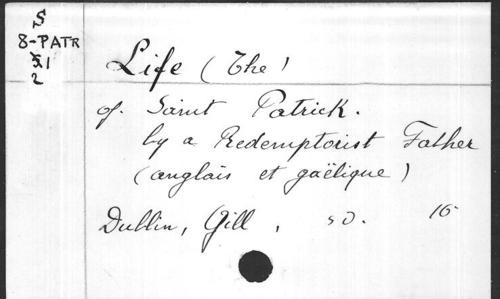 S
8-PATR
5.1
2
Life (The)
of Saint Patrick.
by a Redemptorist Father
(anglais et gaëlique)
Dublin, Gill, s.d. 16